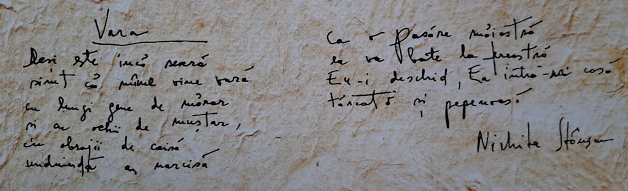 Vara
Deși este încă seară
simt că mâine vine vară
cu lungi gene de mărar
și cu ochii de muștar,
cu obrajii de caisă
mirosind a narcisă
Ca o pasăre măiastră
ea va bate la fereastră
Eu-i deschid, Ea intră-n casă
și pepenoasă
Nichita Stănescu